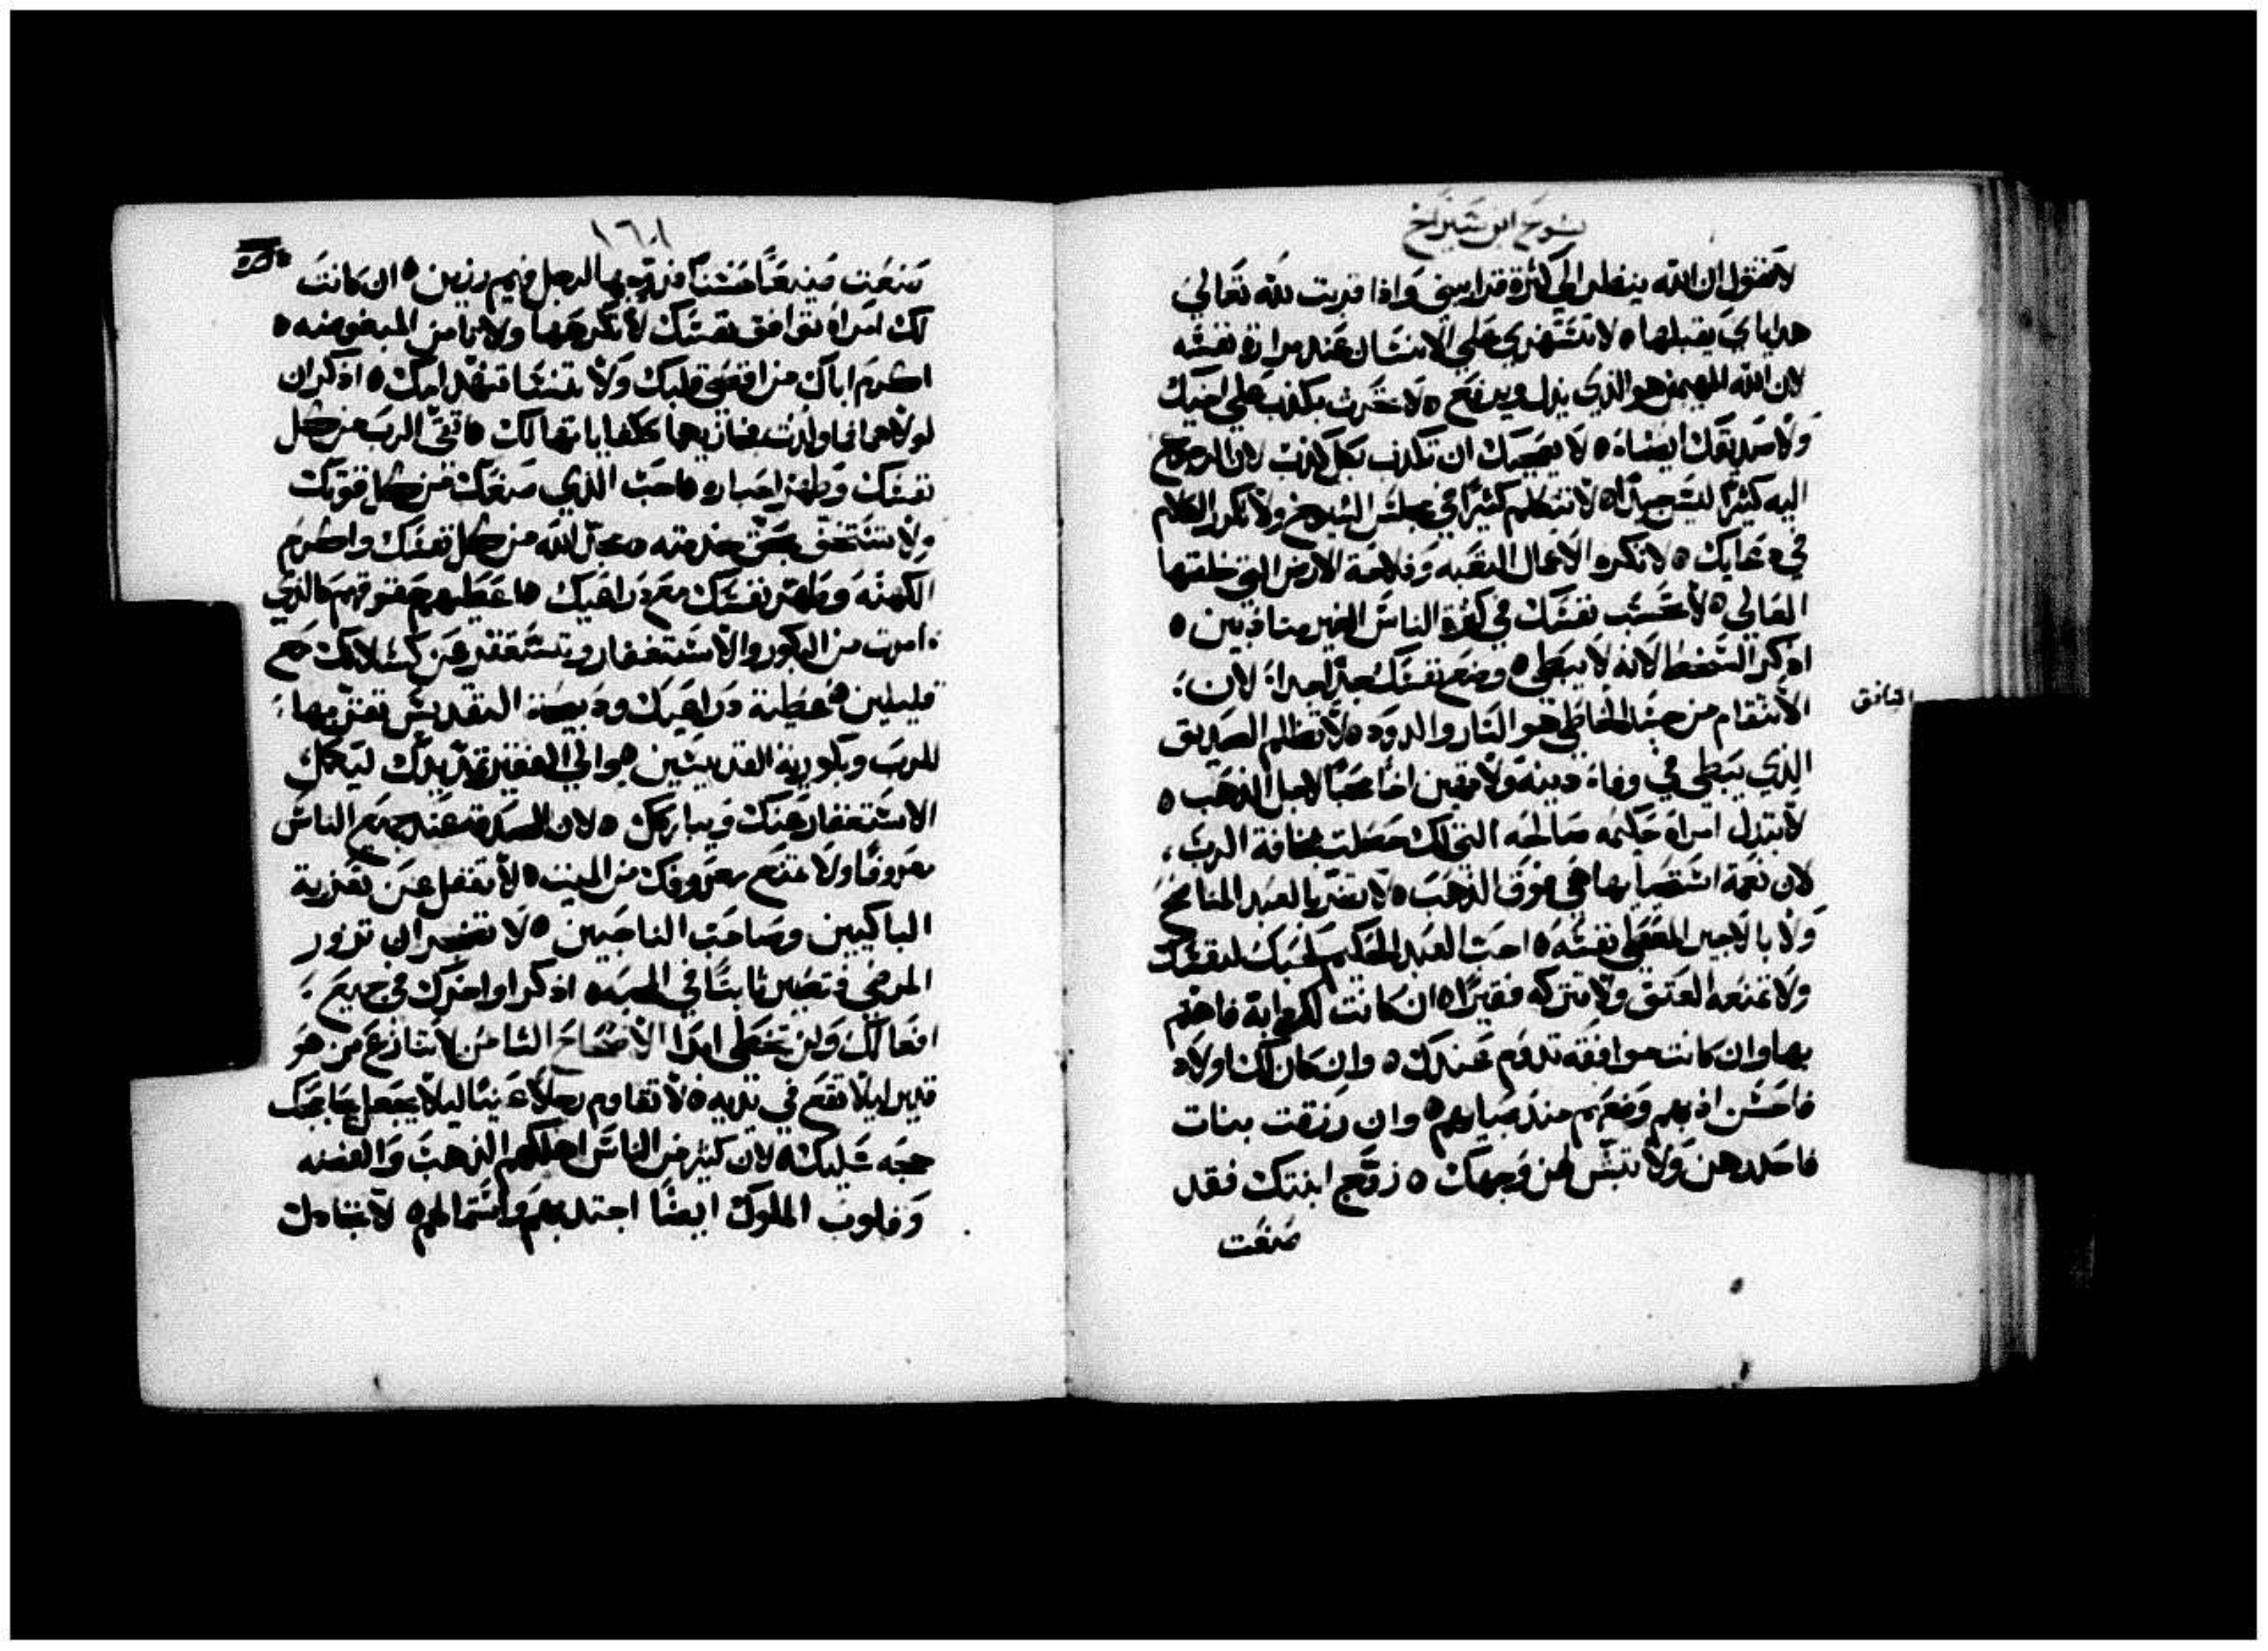 يشوع ابن شيراخ
لا تقول ان الله ينظر الي كثرة قرابيني واذا قربت لله تعالي
هداياي يقبلها ه لا تستهزي علي الانسان عند مرارة نفسه
لان الله المهيمن هو الذي يذل ويرفع ه لا تحرث بكذب علي اخيك
ولا صديقك ايضاه لا يعجبك ان تكذب بكل كذب لان الرجوع
اليه كثيرًا ليس جيدًا ه لا تتكلم كثيرًا في مجلس الشيوخ ولا تكرر الكلام
في دعايك ه لا تكره الاعمال التعبه وفلاحة الارض التي خلقتها
العالي ه لا تحسب نفسك في كثرة الناس الغير متادبين ه
اذكر السخط لانه لا يبطي ه وضع نفسك جدًا جدا لان
الانتقام من جسد الخاطي هو النار والدود ه لا تظلم الصديق
المنافق
الذي يبطي في وفاء دينه ولا تهين اخا محبًا لاجل الذهب ه
لا تبتذل امراة حكيمه صالحه التي لك حصلت بمخافة الرب
لان نعمة استحيايها هي فوق الذهب ه لا تضر بالعبد المناصح
ولا بالاجير المعطي نفسه ه احب العبد الحكيم كحبك لنفسك
ولا تمنعه العتق ولا تتركه فقيرًا ه ان كانت لك دوابة فاهتم
بها وان كانت موافقه تدوم عندك ه وان كان لك اولاد
فاحسن ادبهم وضعهم منذ صبايهم ه وان رزقت بنات
فاحدهن ولا تبش لهن وجهك ه زوج ابنتك فقد
صنعت
١٦١
صنعت صنيعًا حسنًا فزوجها لرجل فهيم رزين ه ان كانت
لك امراة توافق نفسك لا تكرهها ولا تامن المبغوضه ه
اكرم اباك من اقصي قلبك ولا تنسا تنهد امك ه اذكر ان
لولاهما لما ولدت فجازيهما كمكافاتهما لك ه اتقي الرب من كل
نفسك وطهر احباره ه احب الذي صنعك من كل قوتك
ولا تستخف بحق خدمته ه بجل الله من كل نفسك واكرم
الكهنه وطهر نفسك مع دراعيك ه اعطيهم حقوقهم كالذي
امرت من البكور والاستغفار وتستغفر عن كسلانك مع
قليلين ه عطية دراعيك ودبيحة التقديس تقربها
للرب وبكورية القديسين ه والي الفقير تمد يدك ليكمل
الاستغفار عنك ويباركك ه لان الصدقه عند جميع الناس
معروفًا ولا تمنع معروفك من الميت ه لا تغفل عن تعزية
الباكيين وصاحب الناحبين ه لا تضجر ان تزور
المرضي فتصير ثابتًا في المحبه ه اذكر اواخرك في جميع
افعالك ولن تخطي ابدا الاصحاح الثامن لا تنازع من هو
قديرا ليلا تقع في يديه ه لا تقاوم رجلاً غنيًا ليلا يجعل بحاججك
حجه عليك ه لان كثير من الناس اهلكهم الذهب والفضه
وقلوب الملوك ايضًا اجتدبهم واستمالهم ه لا تجادل